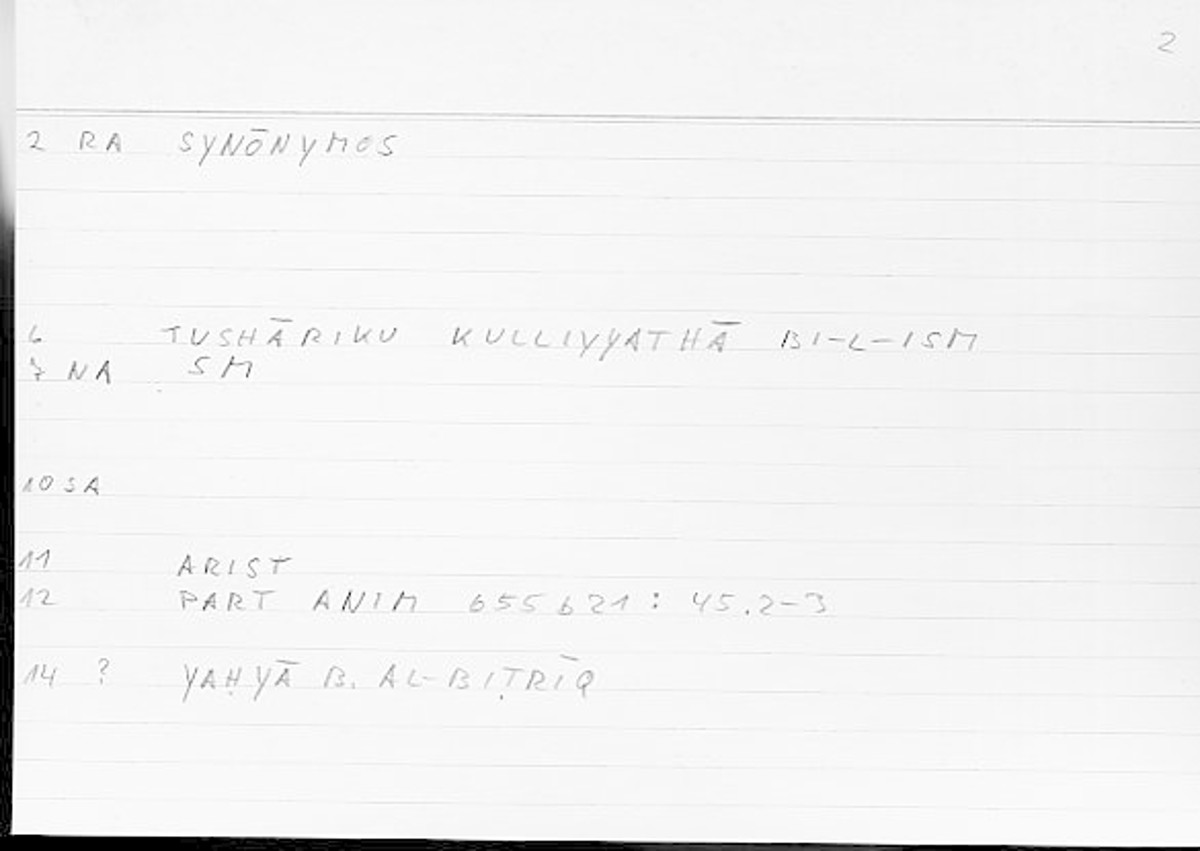 2
2 RA SYNŌNYMOS
6 TUSHĀRIKU KULLIYYATHĀ BI-L-ISM
7 NA SM
10 SA
11 ARIST
12 PART ANIM 655b21: 45.2-3
14 ? YAḤYĀ B. AL-BIṬRĪQ